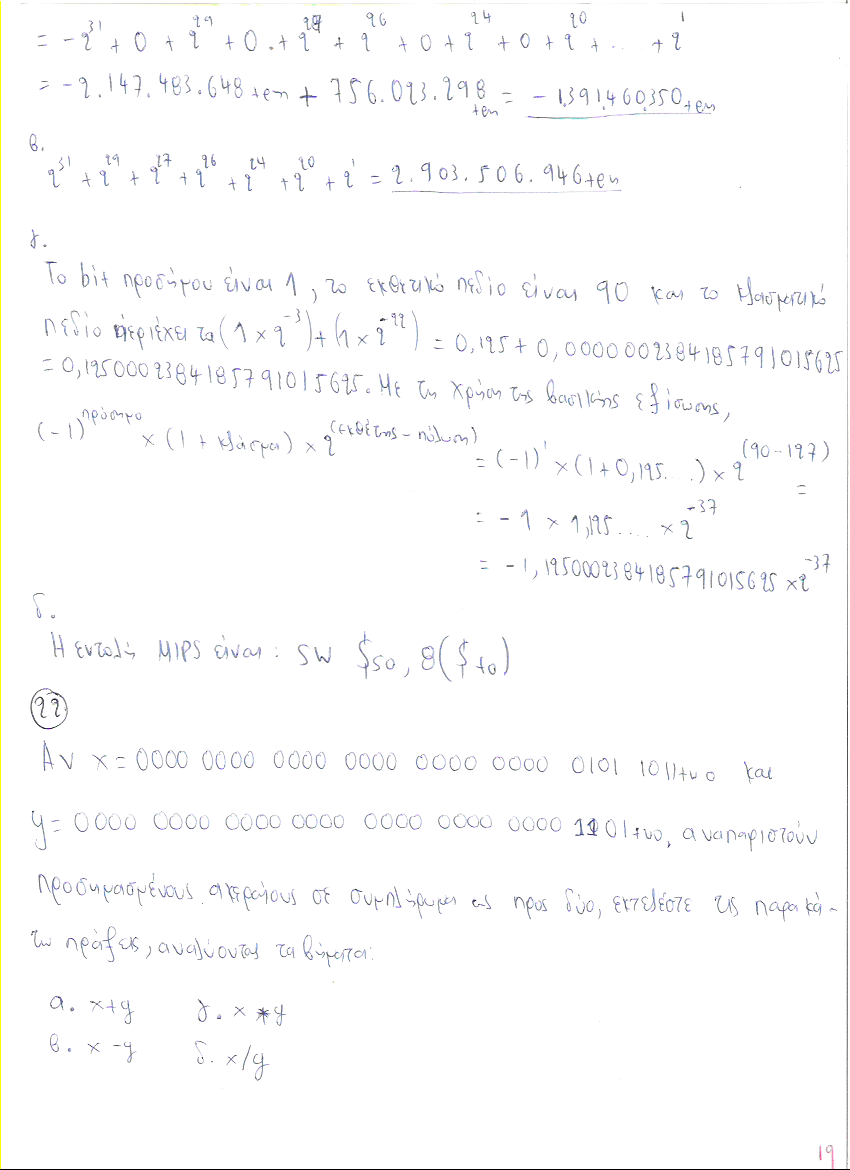 = -2^31 + 0 + 2^29 + 0 + 2^27 + 2^26 + 0 + 2^24 + 0 + 2^20 + ... + 2^1
= -2.147.483.648 ten + 756.023.298 ten = -1.391.460.350 ten
β.
2^31 + 2^29 + 2^27 + 2^26 + 2^24 + 2^20 + 2^1 = 2.903.506.946 ten
γ.
Το bit προσήμου είναι 1, το εκθετικό πεδίο είναι 90 και το κλασματικό
πεδίο περιέχει τα (1 × 2^-3) + (1 × 2^-22) = 0,125 + 0,0000002384185791015625
= 0,1250002384185791015625. Με τη χρήση της βασικής εξίσωσης,
(-1)^πρόσημο × (1 + κλάσμα) × 2^(εκθέτης - πόλωση) = (-1)^1 × (1 + 0,125....) × 2^(90-127) =
= -1 × 1,125.... × 2^-37
= -1,1250002384185791015625 × 2^-37
δ.
Η εντολή MIPS είναι: SW $s0, 8($t0)
22
Αν x = 0000 0000 0000 0000 0000 0000 0101 1011 two και
y = 0000 0000 0000 0000 0000 0000 0000 1101 two, αναπαριστούν
προσημασμένους ακεραίους σε συμπλήρωμα ως προς δύο, εκτελέστε τις παρακά-
τω πράξεις, αναλύοντας τα βήματα:
α. x+y γ. x * y
β. x -y δ. x/y
19